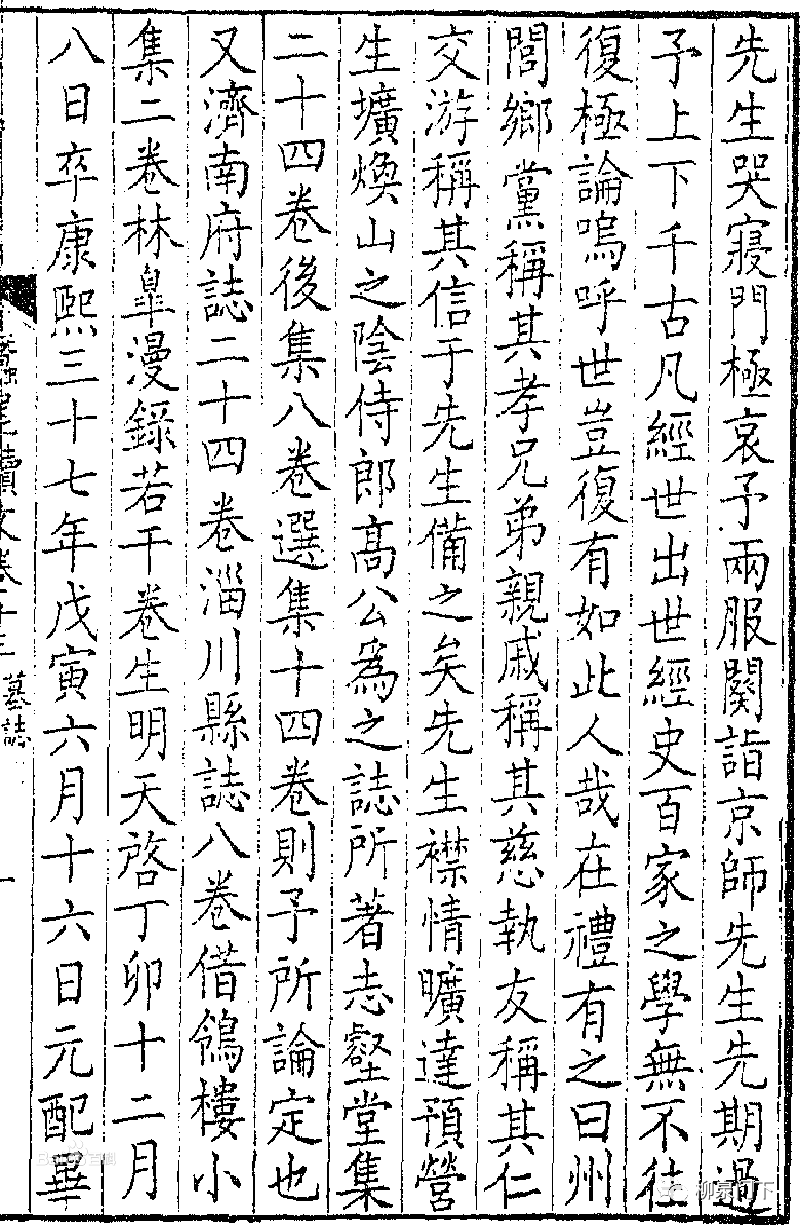 先生哭寢門極哀予兩服闋詣京師先生先期過
予上下千古凡經世出世經史百家之學無不往
復極論嗚呼世豈復有如此人哉在禮有之曰州
閭鄉黨稱其孝兄弟親戚稱其慈執友稱其仁
交游稱其信于先生備之矣先生襟情曠達預營
生壙煥山之陰侍郎高公為之誌所著志壑堂集
二十四卷後集八卷選集十四卷則予所論定也
又濟南府誌二十四卷淄川縣誌八卷借鴿樓小
集二卷林臯漫錄若干卷生明天啓丁卯十二月
八日卒康熙三十七年戊寅六月十六日元配畢
蠶尾續文卷十三 墓誌 一
百度百科
柳泉門下